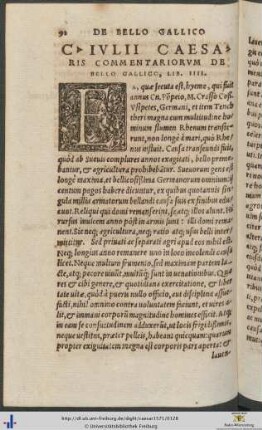 92 DE BELLO GALLICO
C. IVLII CAESA-
RIS COMMENTARIORVM DE
BELLO GALLICO, LIB. IIII.
EA, quæ secuta est, hyeme, qui fuit
annus Cn. Põpeio, M. Crasso Coss.
Vsipetes, Germani, et item Tench
theri magna cum multitudine ho
minum flumen Rhenum transie-
runt, non longè à mari, quò Rhe-
nus influit. Causa transeundi fuit,
quòd ab Sueuis complures annos exagitati, bello preme-
bantur, & agricultura prohibebãtur. Sueuorum gens est
longè maxima, et bellicosissima Germanorum omnium: Hi
centum pagos habere dicuntur, ex quibus quotannis sin-
gula millia armatorum bellandi causa suis ex finibus ed
ucunt. Reliqui qui domi
manserint, se, atque illos alunt. Hi rur-
sus inuicem anno pòst in armis sunt: illi domi remanent.
Sic neq; agricultura, neq; ratio, atque usus belli inter
mittitur. Sed priuati ac separati agri apud eos nihil est,
neq; longius anno remanere uno in loco incolendi causa
licet. Neque multum frumento, sed maximam partem la-
cte, atq; pecore uiuũt, multũq; sunt in uenationibus. Quæ
res et cibi genere, & quotidiana exercitatione, & liber
tate uitæ, quòd à pueris nullo officio, aut disciplina assue-
facti, nihil omnino contra uoluntatem faciant, et uires a-
lit, & immani corporũ magnitudine homines efficit. Atq;
in eam se consuetudinem adduxerũt, ut locis frigidissimis,
neque uestitus, præter pelles, habeant quicquam: quarum
propter exiguitatem magna est corporis pars aperta: et
lauen-
http://dl.ub.uni-freiburg.de/diglit/caesar1571/0128
© Universitätsbibliothek Freiburg